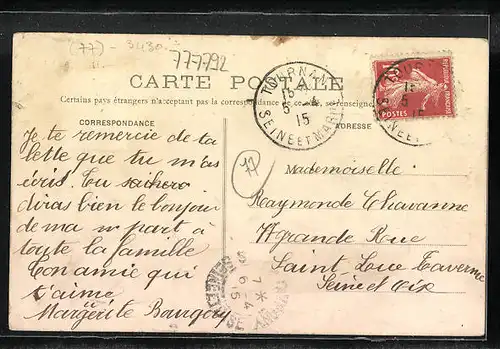 (77) - 3430
777792
CARTE POSTALE
Certains pays étrangers n'acceptant pas la correspondance se renseigner
CORRESPONDANCE
ADRESSE
TOURNAN
15
5 - 4
15
SEINE ET MARNE
10
POSTES
77
Je te remercie de ta
lette que tu m'as
écris. Tu
diras bien le bonjour
de ma part à
toute la famille
Ton amie qui
t'aime
Margerite Baugery
Mademoiselle
Raymonde Chavanne
77 Grande Rue
Saint Leu Taverne
Seine et Oise